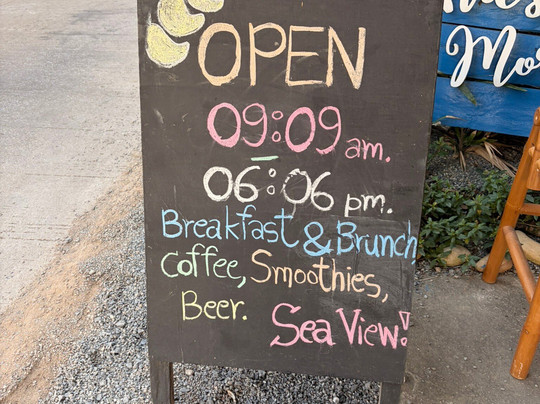 OPEN
09:09 am.
06:06 pm.
Breakfast & Brunch
Coffee, Smoothies,
Beer. Sea View!